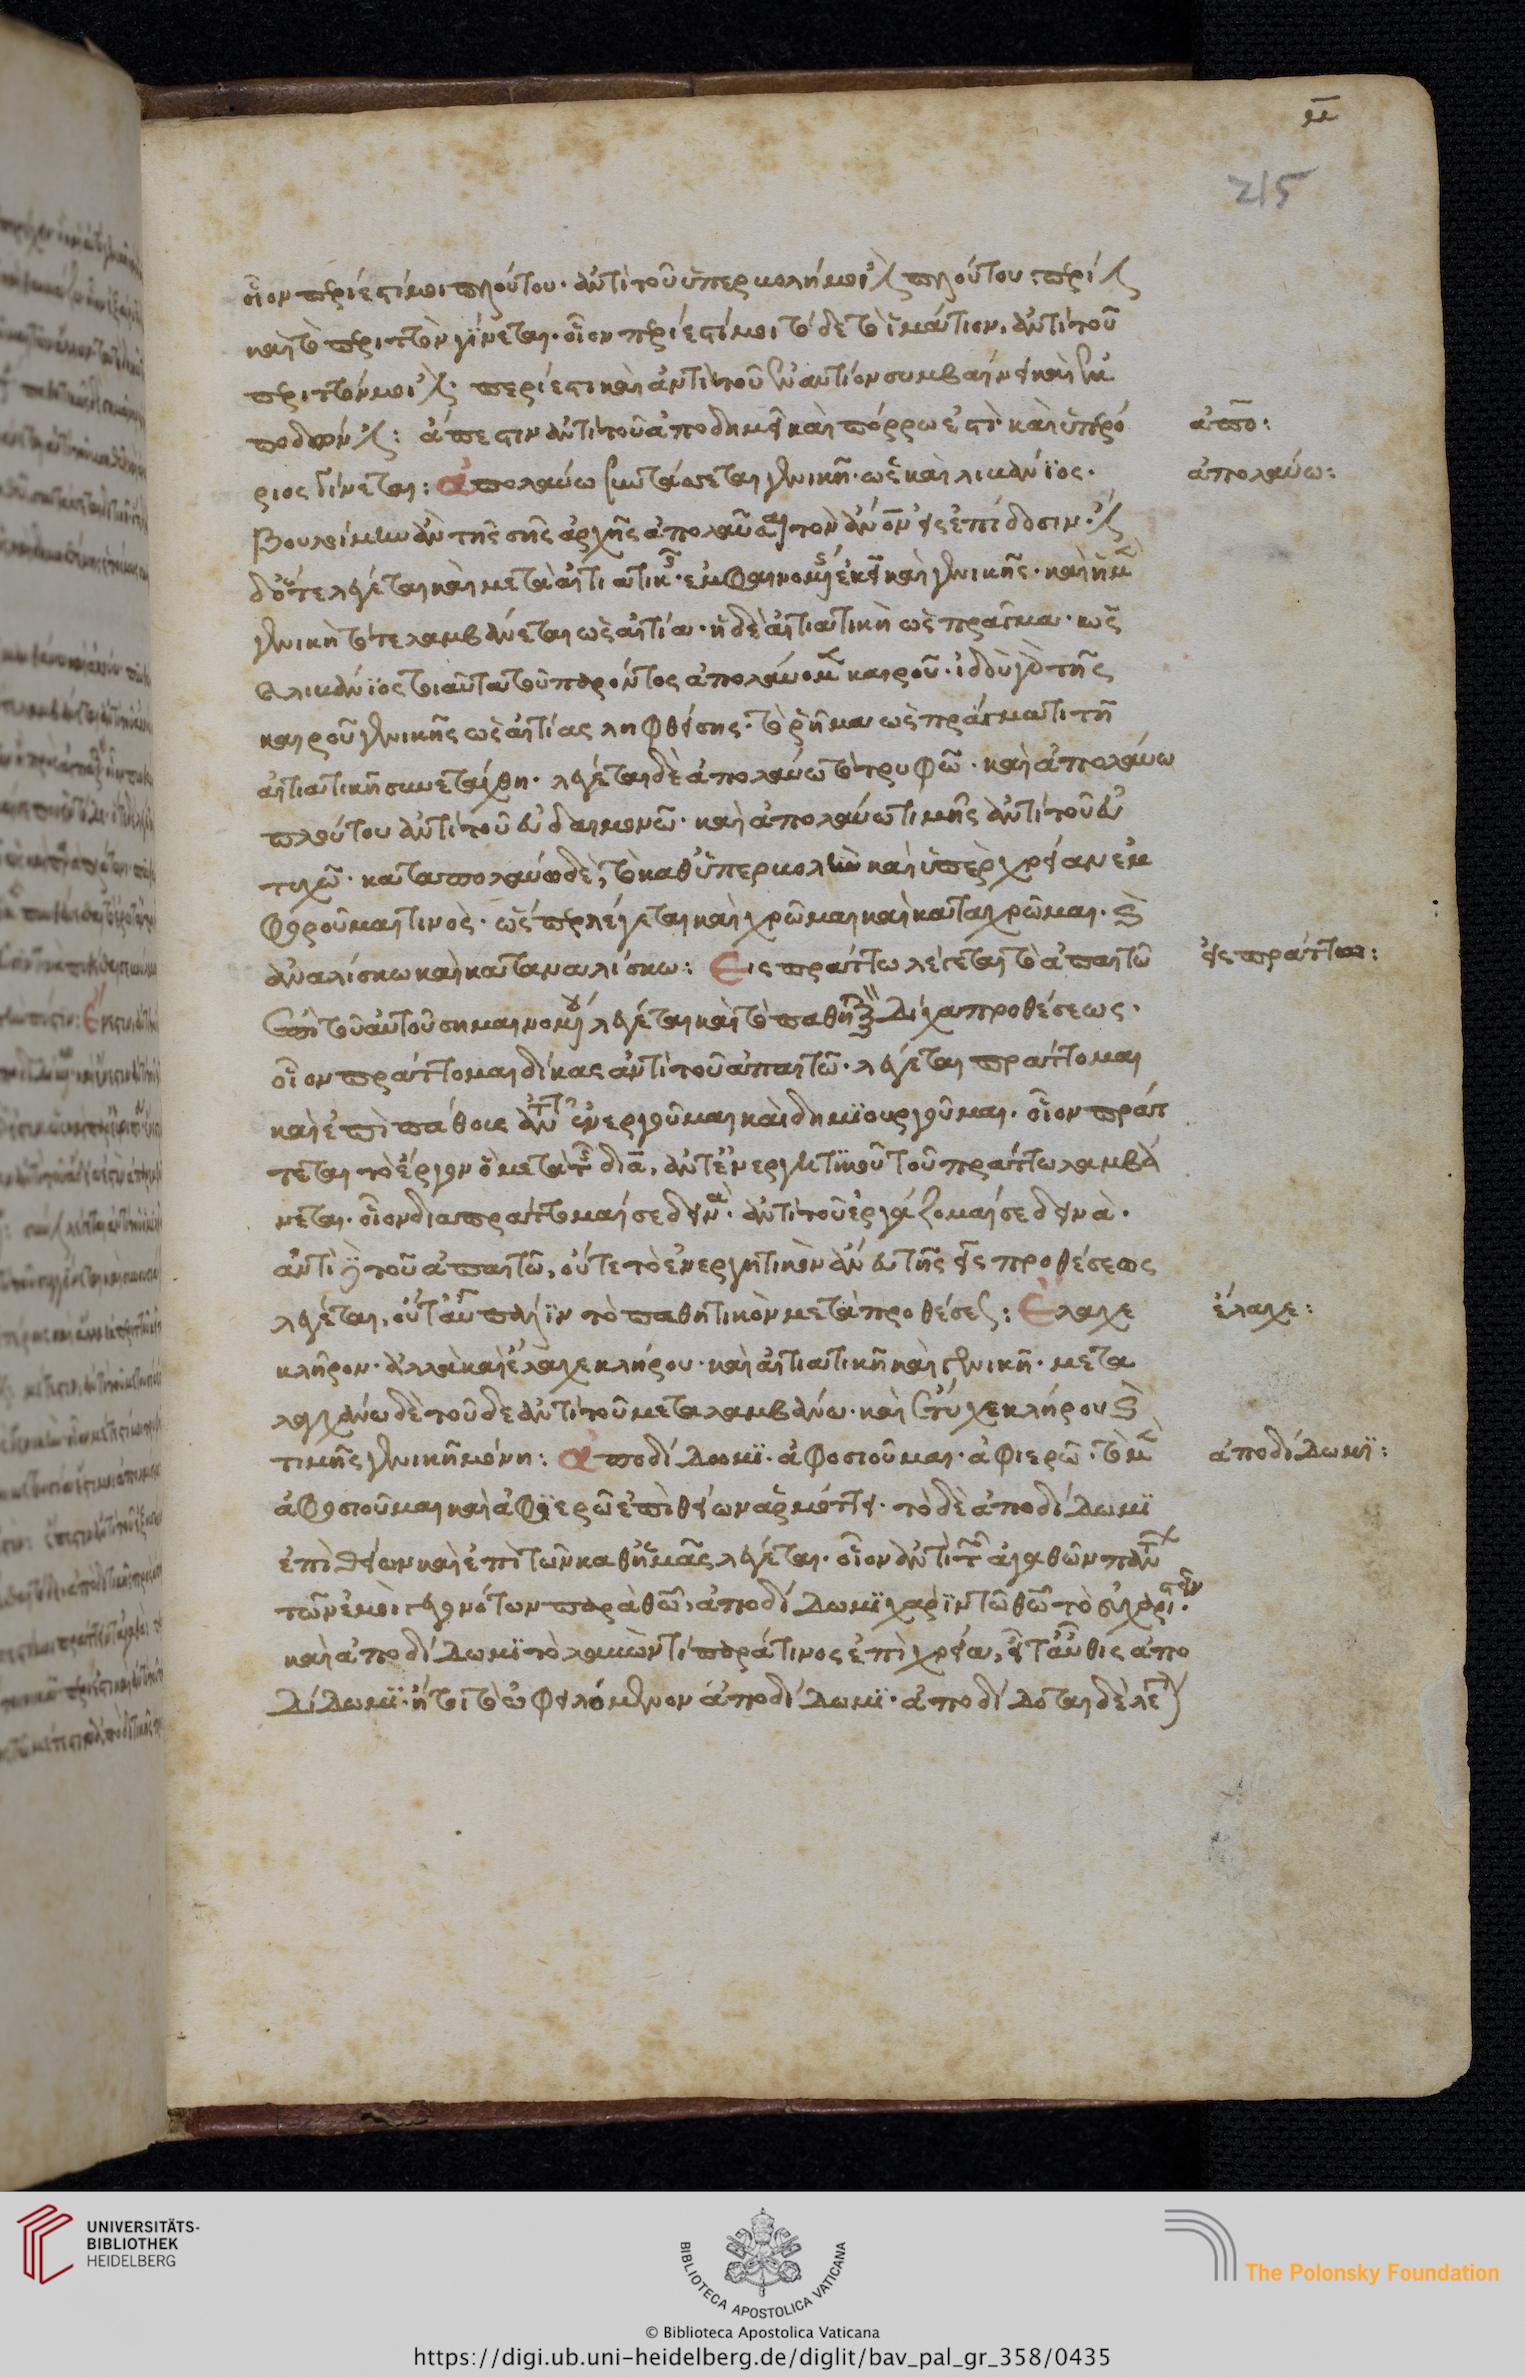 μ
215
οἷον περίεστί μοι πλούτου· ἀντὶ τοῦ ὑπερβολή μοι πλούτου· περί
καὶ τὸ περιττὸν γίνεται· οἷον περίεστί μοι τόδε τὸ ἱμάτιον, ἀντὶ τοῦ
περιττόν μοι περίεστι καὶ ἀντὶ τοῦ ἐναντίον συμβαίνει καὶ ἐκ
ποδῶν ἄπεστιν ἀντὶ τοῦ ἀποδημεῖ καὶ πόρρω ἐστὶ καὶ ὑπερό
ριος γίνεται: ἀπολαύω συντάσσεται γενικῇ· ὡς καὶ λιβάνιος·
βουλοίμην ἂν τῆς σῆς ἀρχῆς ἀπολαῦσαι τὸν εἰς ἐπίδοσιν·
λέγεται καὶ μετὰ αἰτιατικῆς· καὶ γενικῆς· καὶ ἡ μὲν
γενικὴ τότε λαμβάνεται ὡς αἰτία· ἡ δὲ αἰτιατικὴ ὡς πρᾶγμα· ὡς
ὁ λιβάνιος τοιαῦτα τοῦ παρόντος ἀπολαύομεν καιροῦ· ἰδοὺ γὰρ τῆς
καιροῦ γενικῆς ὡς αἰτίας ληφθείσης· τὸ ῥῆμα ὡς πράγματι τῇ
αἰτιατικῇ συνετάχθη· λέγεται δὲ ἀπολαύω τὸ τρυφῶ· καὶ ἀπολαύω
πλούτου ἀντὶ τοῦ εὐδαιμονῶ· καὶ ἀπολαύω τιμῆς ἀντὶ τοῦ εὐ
τυχῶ· καταπολαύω δὲ, τὸ καθ' ὑπερβολὴν καὶ ὑπὲρ χρείαν ἐμ
φοροῦμαι τινὸς· ὥσπερ λέγεται καὶ χρῶμαι καὶ καταχρῶμαι· καὶ
ἀναλίσκω καὶ καταναλίσκω: Εἰσπράττω λέγεται τὸ ἀπαιτῶ
ἐπὶ τοῦ αὐτοῦ σημαινομένου λέγεται καὶ τὸ παθητικὸν δίχα προθέσεως·
οἷον πράττομαι δίκας ἀντὶ τοῦ ἀπαιτῶ· λέγεται πράττομαι
καὶ ἐπὶ πάθους ἀντὶ τοῦ ἐνεργοῦμαι καὶ δημϊουργοῦμαι· οἷον πράτ
τεται τὸ ἔργον ὃ μετὰ τῆς διὰ, ἀντ' ἐνεργητϊκοῦ τοῦ πράττω λαμβά
νεται· οἷον διαπράττομαί σε δεινὰ· ἀντὶ τοῦ ἐργάζομαί σε δεινὰ·
ἀντὶ δὲ τοῦ ἀπαιτῶ, οὔτε τὸ ἐνεργητικὸν ἄνευ τῆς εἰς προθέσεως
λέγεται, οὔτ' αὖ πάλϊν τὸ παθητικὸν μετὰ προθέσεως: Ἔλαχε
κλῆρον· ἀλλὰ καὶ ἔλαχε κλήρου· καὶ αἰτιατικῇ καὶ γενικῇ· μετα
λαγχάνω δὲ τοῦδε ἀντὶ τοῦ μεταλαμβάνω· καὶ ἔτυχε κλήρου καὶ
τιμῆς γενικῇ μόνῃ: ἀποδίδωμϊ· ἀφοσιοῦμαι· ἀφιερῶ· τὸ μὲν
ἀφοσιοῦμαι καὶ ἀφϊερῶ ἐπὶ θείων ἁρμόττει· τὸ δὲ ἀποδίδωμϊ
ἐπὶ θείων καὶ ἐπὶ τῶν καθ' ἡμᾶς λέγεται· οἷον ἀντὶ τῶν ἀγαθῶν πάντων
τῶν ἐμοὶ γεγονότων παρὰ θεῶ, ἀποδίδωμϊ χάρϊν τῶ θεῶ τὸ εὐχαριστεῖν·
καὶ ἀποδίδωμϊ τὸ λαβών τι παρά τινος ἐπὶ χρεία, εἶτ' αὖθις ἀπο
δίδωμϊ· ἤτοι τὸ ὀφειλόμενον ἀποδίδωμϊ· ἀποδίδοται δὲ λέγεται
ἀπὸ:
ἀπολαύω:
εἰσπράττω:
ἔλαχε:
ἀποδίδωμϊ:
UNIVERSITÄTS-
BIBLIOTHEK
HEIDELBERG
BIBLIOTECA APOSTOLICA VATICANA
© Biblioteca Apostolica Vaticana
The Polonsky Foundation
https://digi.ub.uni-heidelberg.de/diglit/bav_pal_gr_358/0435